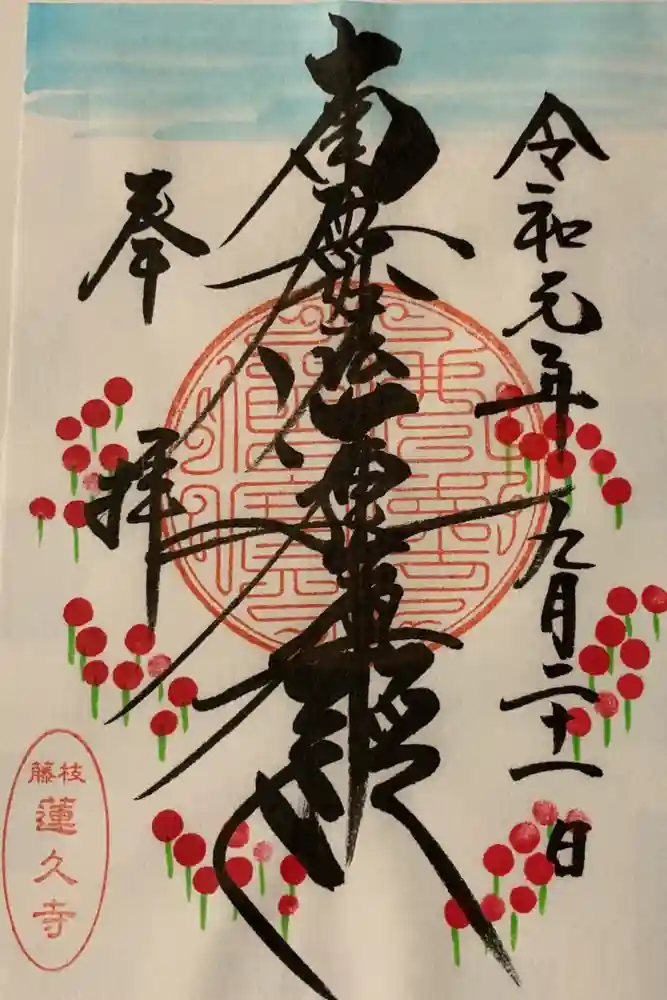 令和元年九月二十一日
南無妙法蓮華経
奉拝
藤枝
蓮久寺